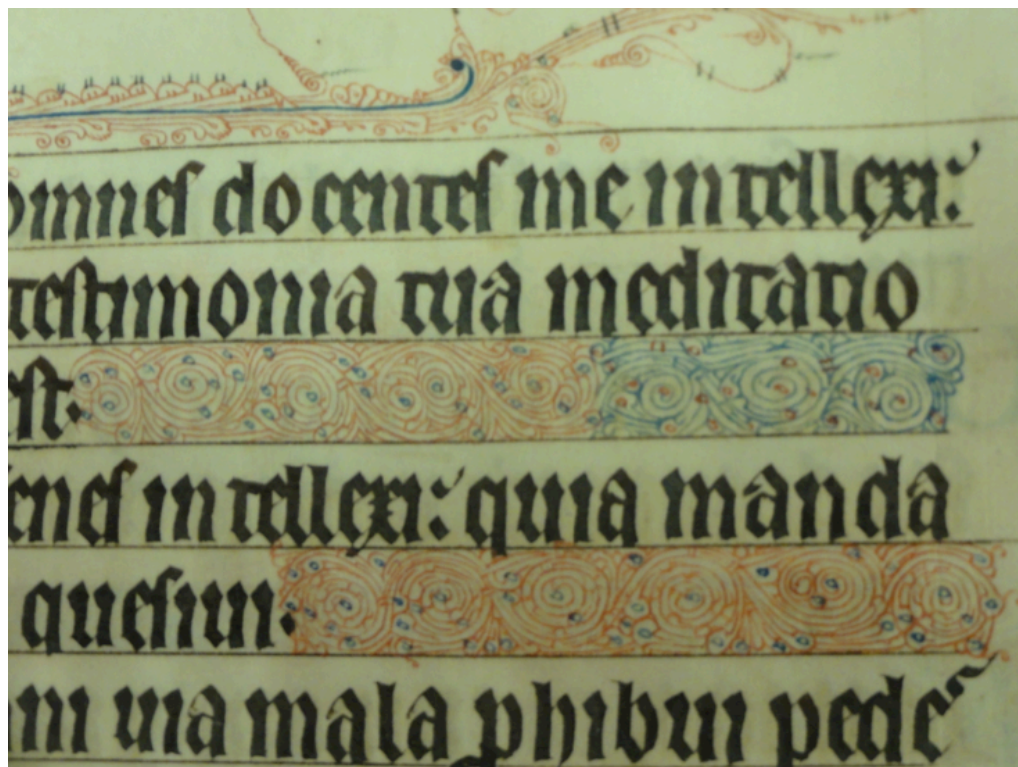 omnes docentes me intellexi:
testimonia tua meditatio
est.
enes intellexi: quia manda
quesiui.
ni uia mala phibui pede